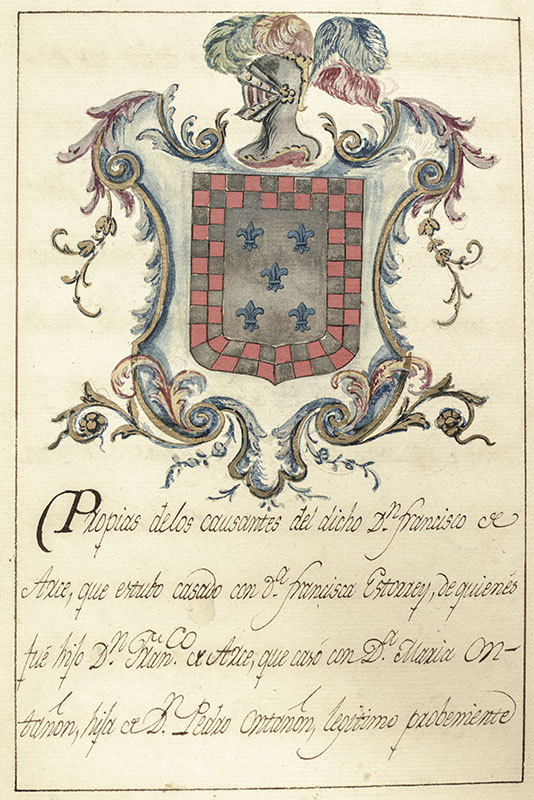 Propias delos causantes del dicho Dⁿ Francisco de
Arce, que estubo casado con Dª Francisca Estorrey, de quienés
fué hijo Dⁿ Franᶜᵒ de Arce, que casó con Dª Maria On-
tañon, hija de Dⁿ Pedro Ontañon, legitimo probeniente